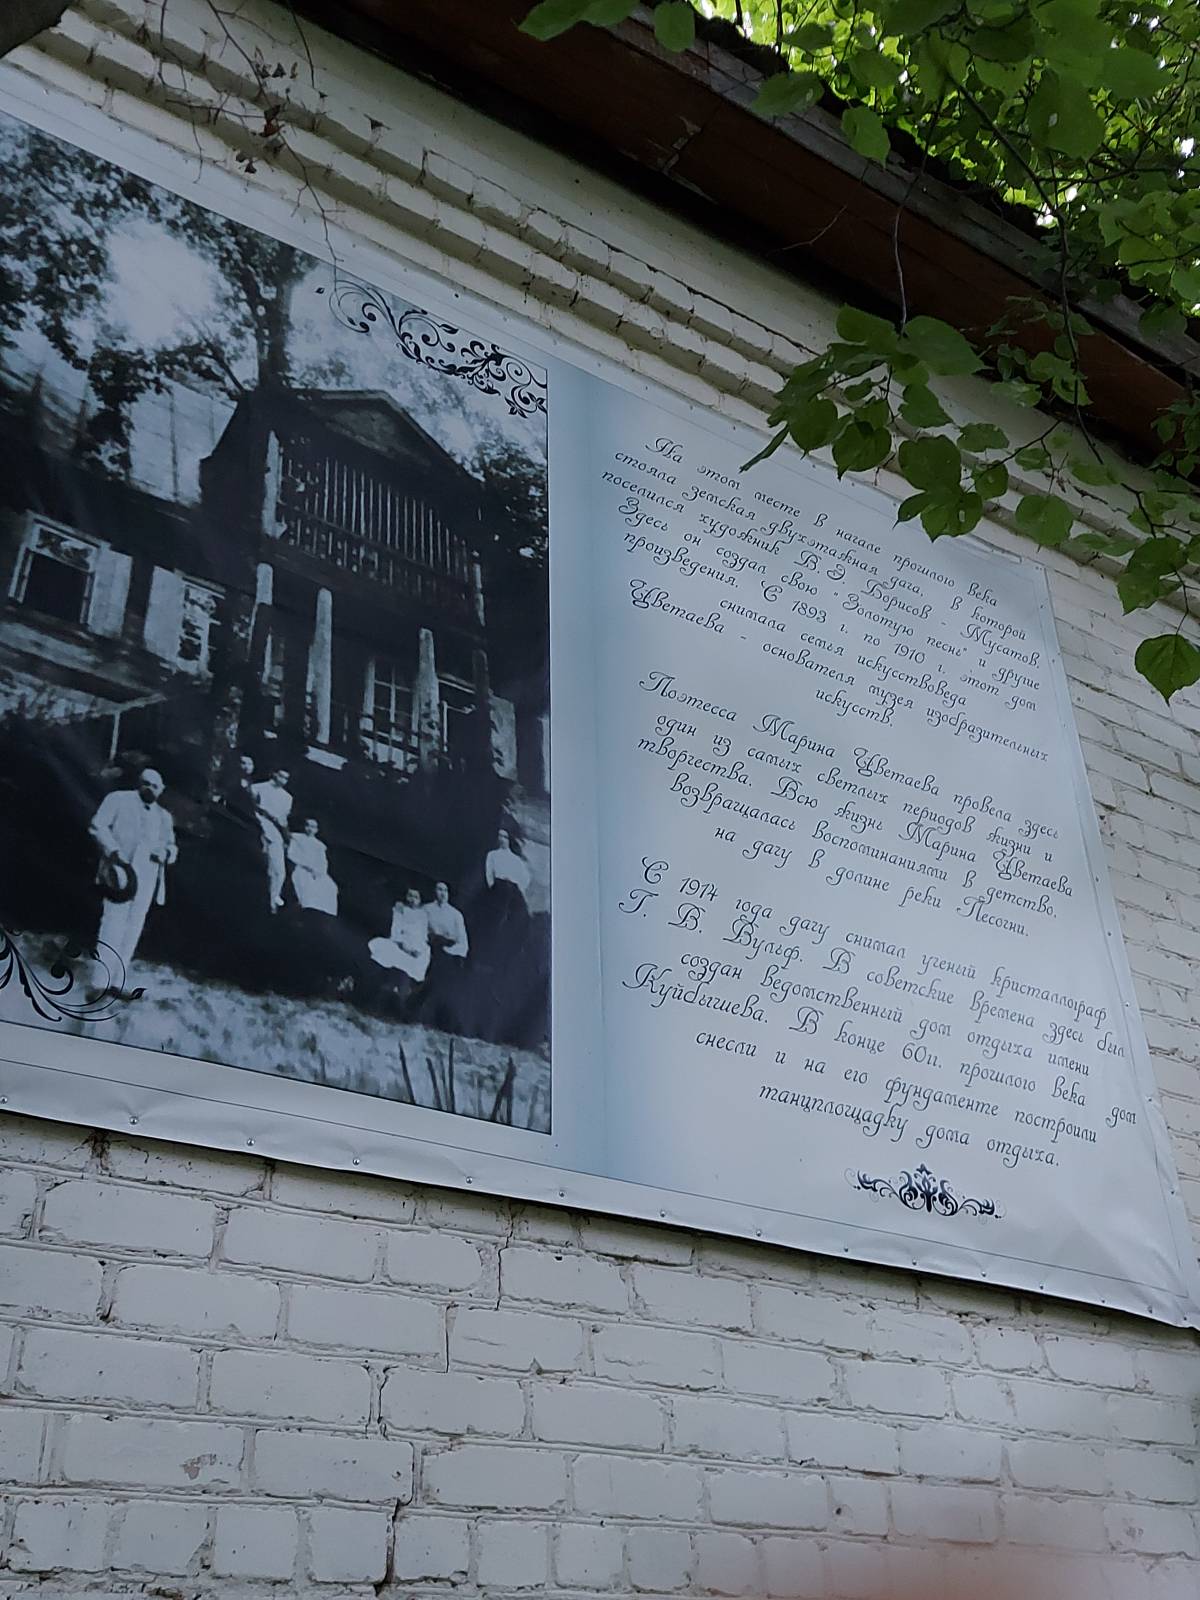 На этом месте в начале прошлого века
стояла земская двухэтажная дача, в которой
поселился художник В. Э. Борисов - Мусатов.
Здесь он создал свою "Золотую песнь" и другие
произведения. С 1893 г. по 1910 г. этот дом
снимала семья искусствоведа
Цветаева - основателя музея изобразительных
искусств.
Поэтесса Марина Цветаева провела здесь
один из самых светлых периодов жизни и
творчества. Всю жизнь Марина Цветаева
возвращалась воспоминаниями в детство,
на дачу в долине реки Песочни.
С 1914 года дачу снимал ученый кристаллограф
Г. В. Вульф. В советские времена здесь был
создан ведомственный дом отдыха имени
Куйбышева. В конце 60гг. прошлого века дом
снесли и на его фундаменте построили
танцплощадку дома отдыха.